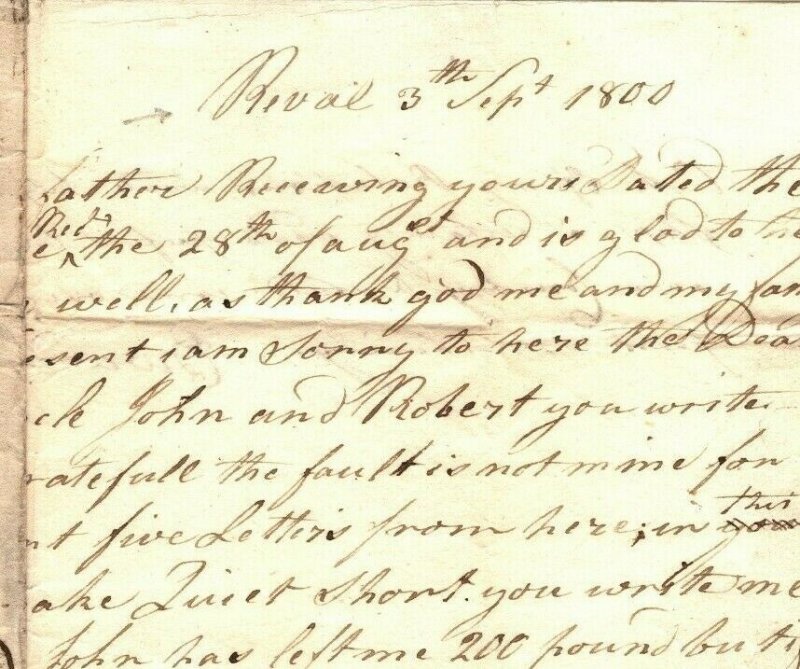 Reval 3th Sept 1800
father Receiving yours Dated the
Recd
the 28th of augst and is glad to he
well, as thank god me and my fam
esent i am Sorry to here the Dea
cle John and Robert you write
ratefull the fault is not mine for
nt five Letters from here; in this
ake Quiet Short. you write me
John has left me 200 pound but i